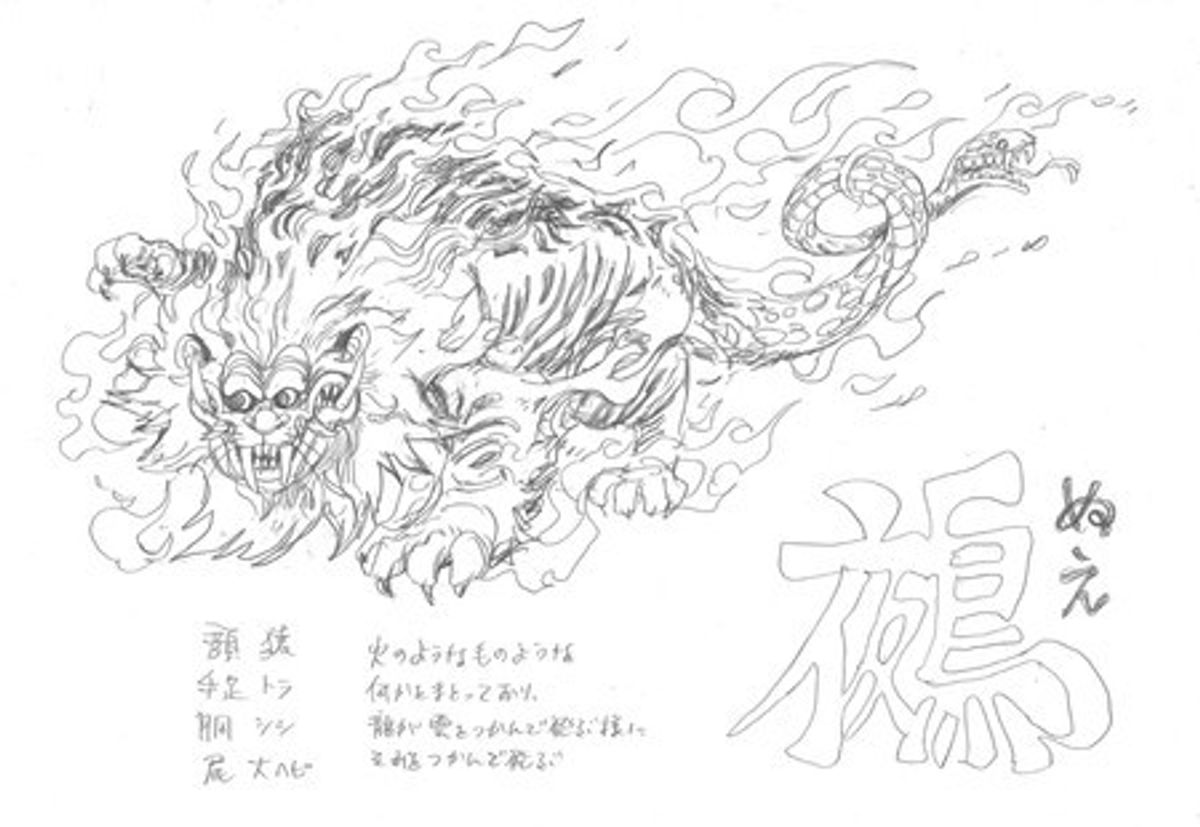 鵺
ぬえ
顔 猿
手足 トラ
胴 シシ
尾 大ヘビ
火のようなものような
何かをまとっており、
龍が雲をつかんで飛ぶ様に
それをつかんで飛ぶ